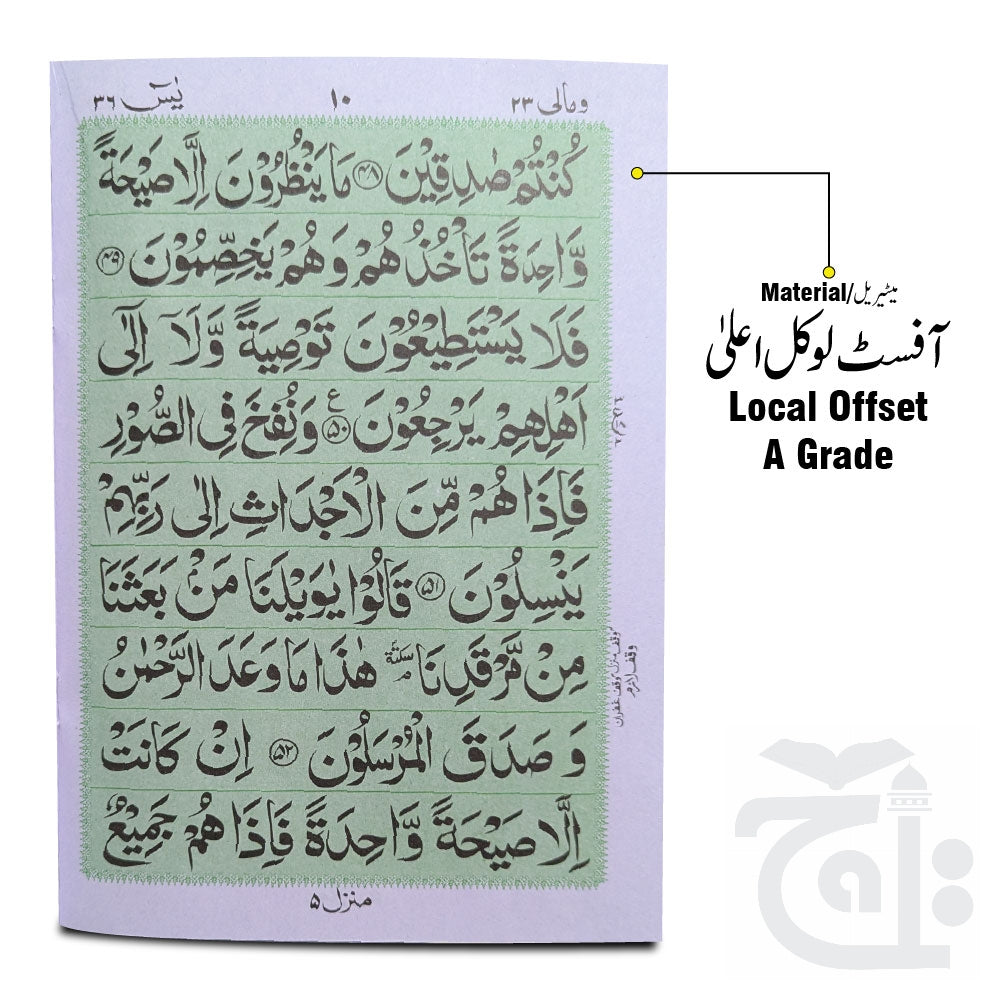 ومالی ۲۳ ۱۰ یٰسٓ ۳۶
كُنْتُمْ صٰدِقِيْنَ ۴۸ مَا يَنْظُرُوْنَ اِلَّا صَيْحَةً
وَّاحِدَةً تَاْخُذُهُمْ وَهُمْ يَخِصِّمُوْنَ ۴۹
فَلَا يَسْتَطِيْعُوْنَ تَوْصِيَةً وَّلَآ اِلٰٓى
اَهْلِهِمْ يَرْجِعُوْنَ ع ۵۰ وَنُفِخَ فِى الصُّوْرِ
فَاِذَا هُمْ مِّنَ الْاَجْدَاثِ اِلٰى رَبِّهِمْ
يَنْسِلُوْنَ ۵۱ قَالُوْا يٰوَيْلَنَا مَنْۢ بَعَثَنَا
مِنْ مَّرْقَدِنَا سكتة هٰذَا مَا وَعَدَ الرَّحْمٰنُ
وَصَدَقَ الْمُرْسَلُوْنَ ۵۲ اِنْ كَانَتْ
اِلَّا صَيْحَةً وَّاحِدَةً فَاِذَا هُمْ جَمِيْعٌ
منزل ۵
وقف لازم
وقف منزل وقف غفران
Material/میٹیریل
آفسٹ لوکل اعلیٰ
Local Offset
A Grade